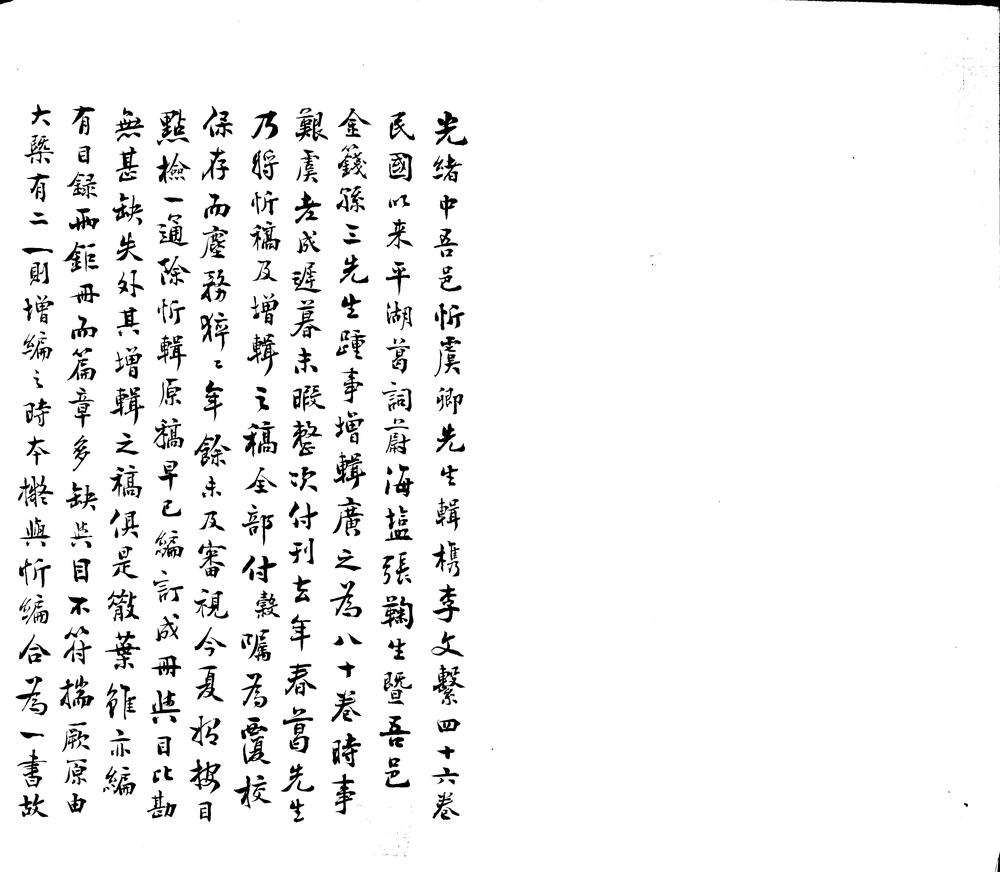 光緒中吾邑忻虞卿先生輯檇李文繫四十六卷
民國以来平湖葛詞蔚海盐張鞠生暨吾邑
金籛孫三先生踵事增輯廣之為八十卷時事
艱虞老成遲暮未暇整次付刊去年春葛先生
乃將忻稿及增輯之稿全部付穀嘱為覆校
保存而塵務猝〻年餘未及審視今夏招按目
點檢一通除忻輯原稿早已編訂成冊與目比勘
無甚缺失外其增輯之稿俱是散葉雖亦編
有目録兩鉅冊而篇章多缺與目不符揣厥原由
大槩有二一則增編之時本擬與忻編合為一書故